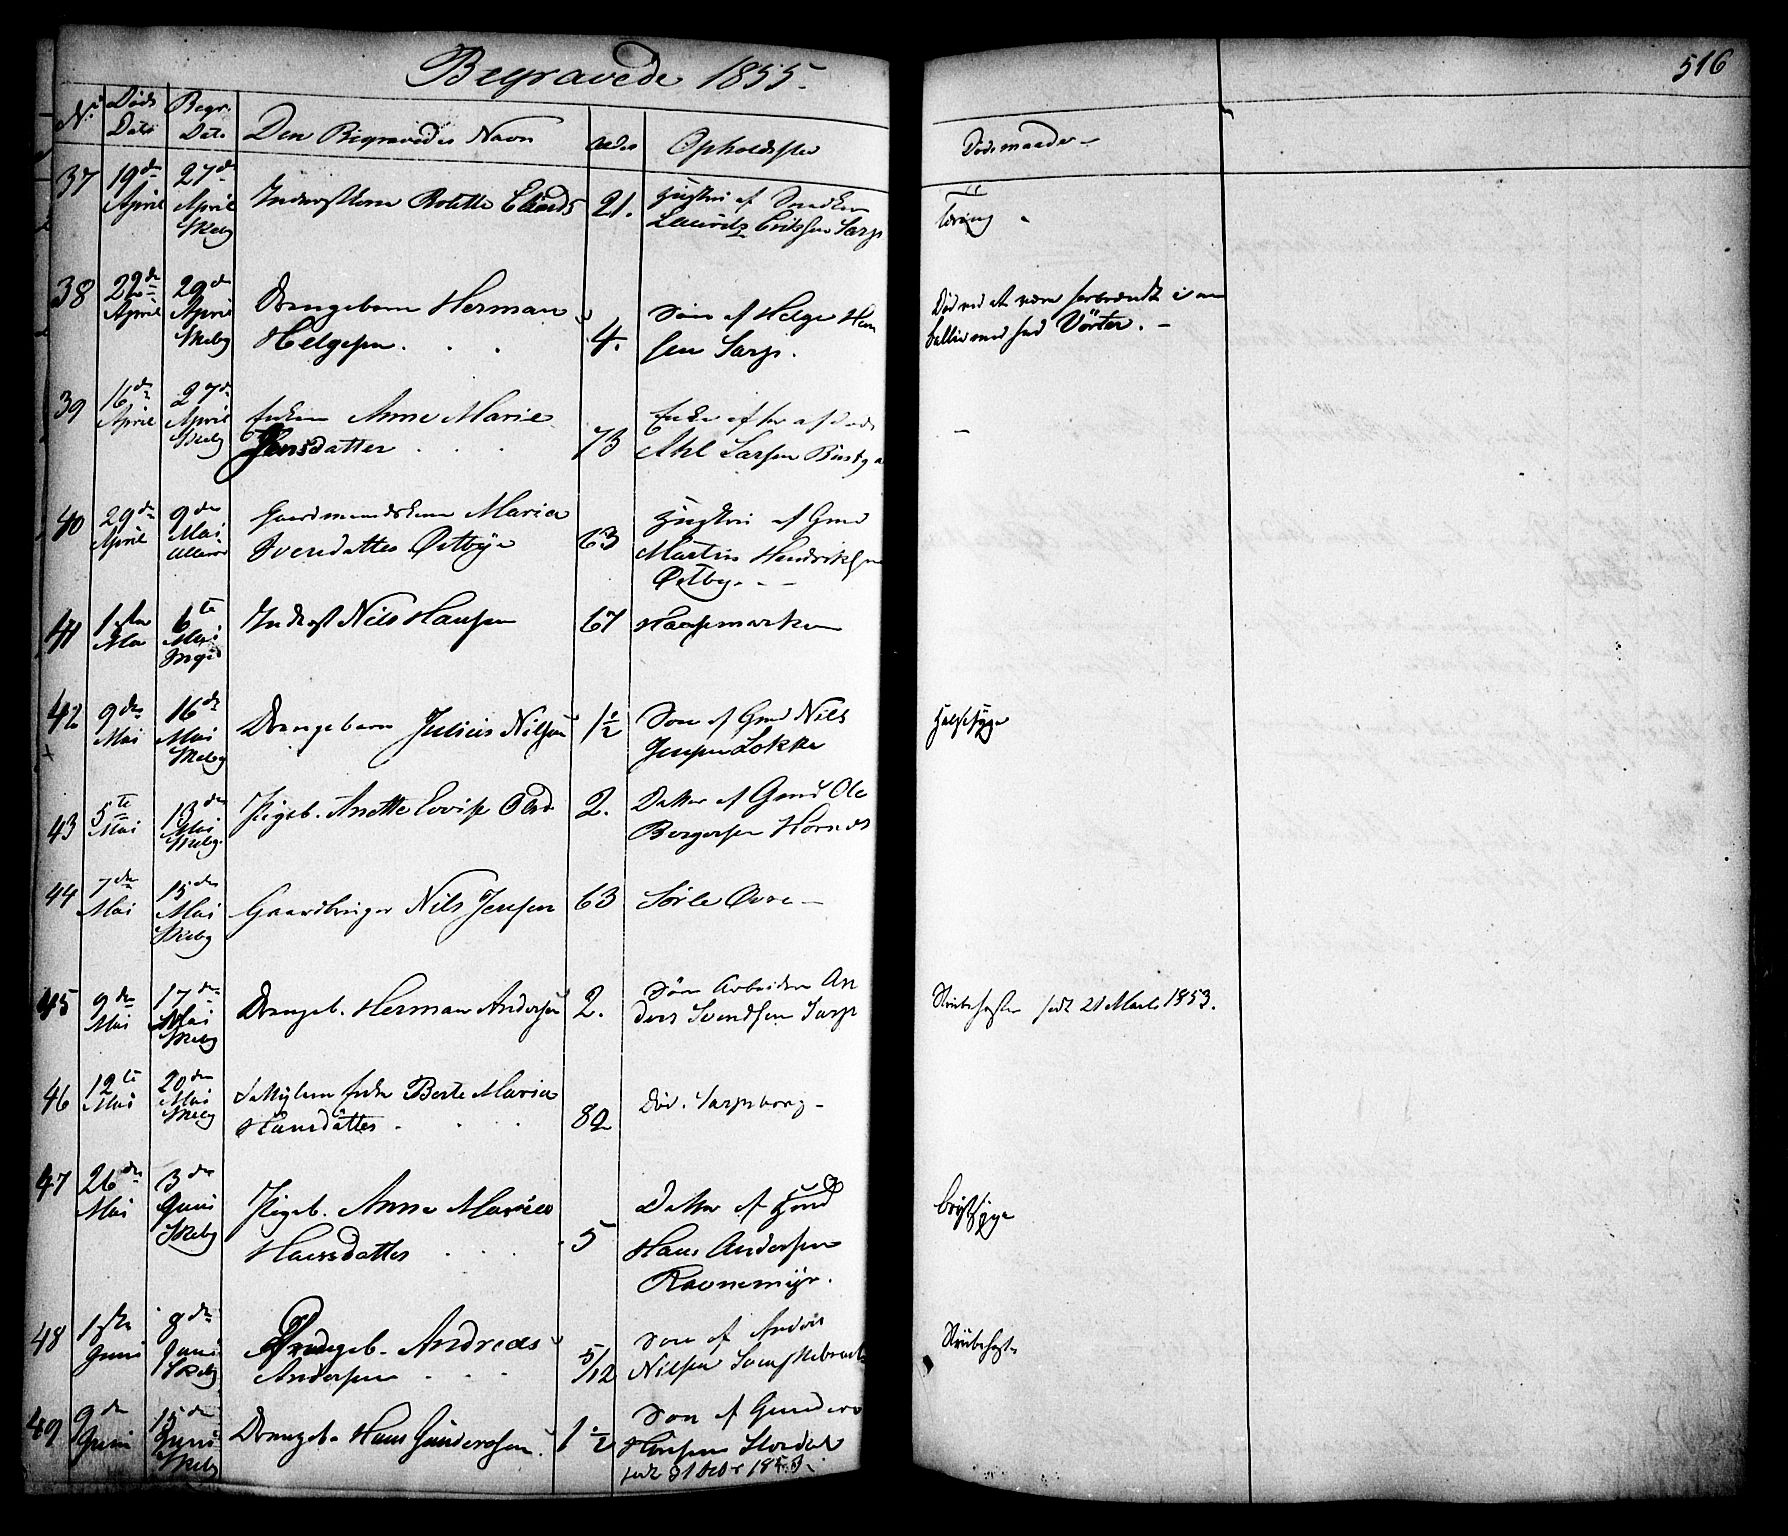 Begravede 1855.
516
No Døds Dato Begr. Dato Den Begravedes Navn Alder Opholdssted Dødsmaade
37 19de April 27de April Skeby Inderstkone Bolette 21. Hustru af
Lauritz Eriksen Sarp Tæring
38 22de April 29de April Skeby Drengebarn Herman
Helgesen. 4. Søn af Helge Han
sen Sarp. Død ved at være forbrændt i en
Vörter.
39 16de April 27de April Skeby Enken Anne Marie
Jensdatter 73 Enke efter afdøde
Ahl Larsen
40 29de April 9de Mai Gaardmandskone Maria
Iversdatter Østbye 63 Hustru af Gmd
Martin Hendriksen
Østby
41 1ste Mai 6te Mai Inderst Nils Hansen 67 Hasemarken
42 9de Mai 16de Mai Skeby Drengebarn Julius Nilsen 1 1/2 Søn af Gmd Nils
Jensen Løkke Halssyge
43 5te Mai 13de Mai Skeby Pigeb. Anette Lovise Olsd 2. Datter af Gmd Ole
Borgersen Hornes
44 7de Mai 15de Mai Skeby Gaardbruger Nils Jensen 63 Sørle Øvre
45 9de Mai 17de Mai Skeby Drengeb. Herman Andersen 2. Søn Arbeider An
ders Svendsen Sarp Strubehoste født 21 Marts 1853.
46 12te Mai 20de Mai Skeby Enke Berte Maria
Hansdatter 82 Sarpsborg
47 26de Mai 3de Juni Skeby Pigeb. Anne Marie
Hansdatter 5 Datter af Hmd
Hans Andersen
Ravnemyr. Brystsyge
48 1ste Juni 8de Juni Skeby Drengeb. Andreas
Andersen 5/12 Søn af Anders
Nilsen Strubehoste
49 9de Juni 15de Juni Skeby Drengeb. Hans Gundersen 1 1/2 Søn af Gunder
Hansen Stordal
født